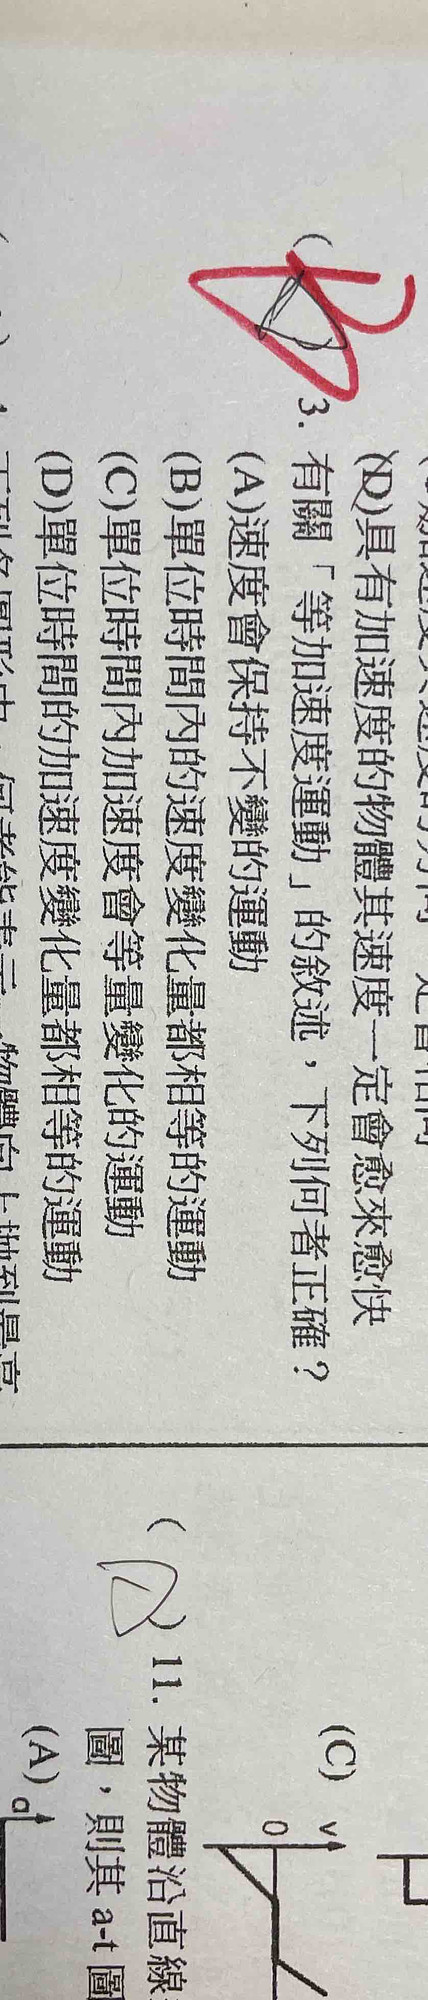 (D)具有加速度的物體其速度一定會愈來愈快
( ) 3. 有關「等加速度運動」的敘述，下列何者正確？
(A)速度會保持不變的運動
(B)單位時間內的速度變化量都相等的運動
(C)單位時間內加速度會等量變化的運動
(D)單位時間的加速度變化量都相等的運動
(C)
v
0
( ) 11. 某物體沿直線
圖，則其 a-t 圖
(A)
a